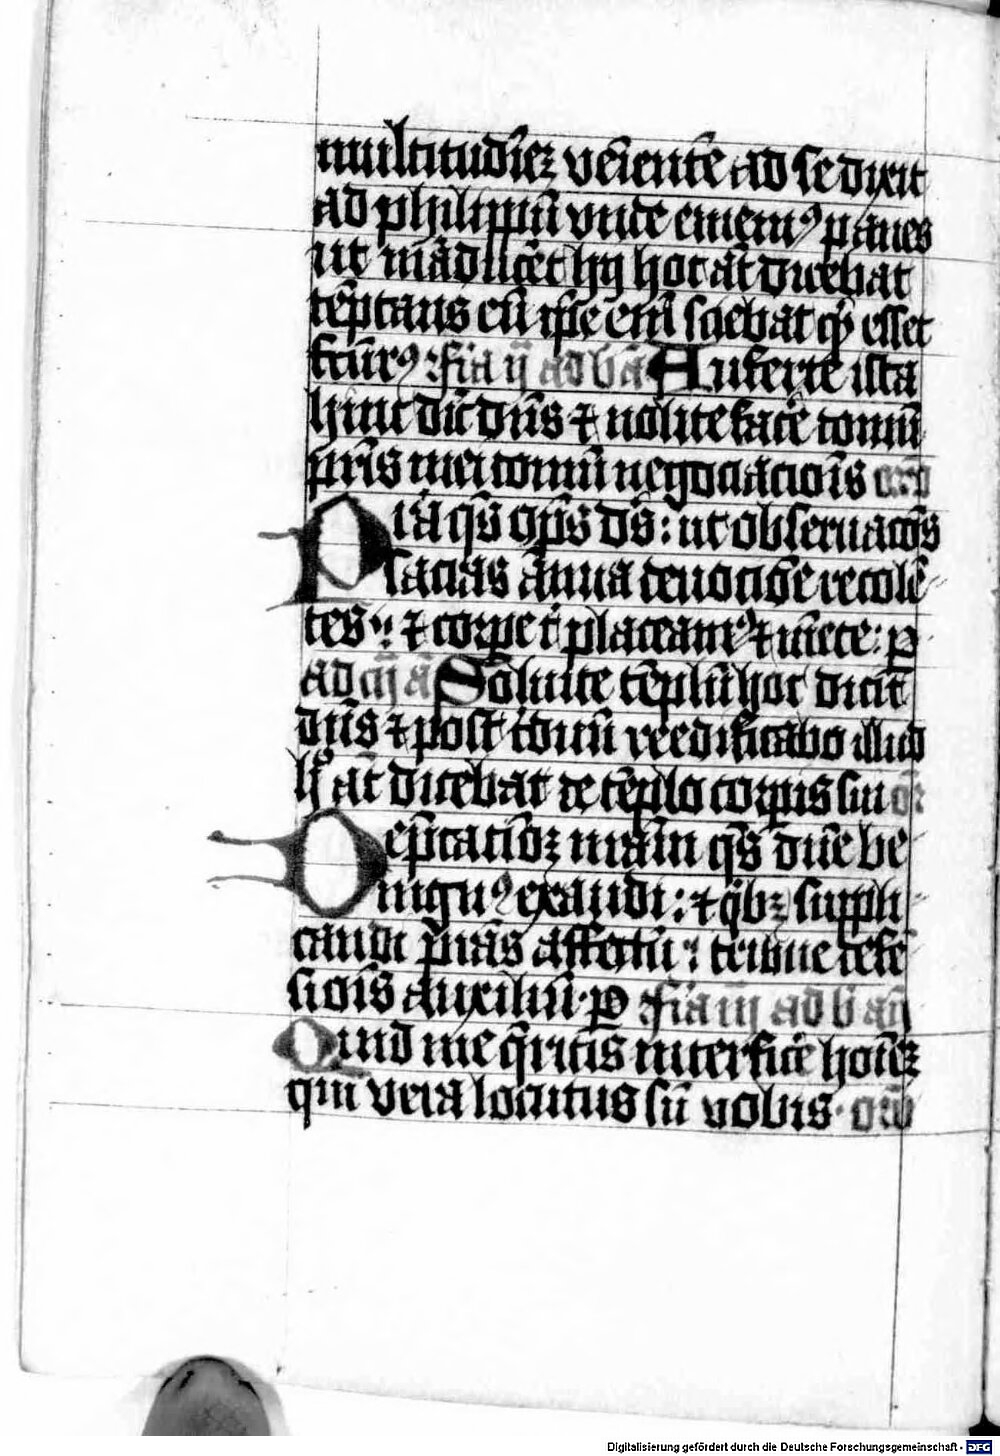 multitudīeꝫ vēiente ad se dixit
ad philippū vnde ememꝰ panes
ut māducēt hij hoc āt dicebat
tēptans eū ip̄e enī sciebat qͥ esset
fc̄urꝰ ffīa ij ad bn̄ Auferte ista
hinc dīc dn̄s ⁊ nolite facē domū
pr̄is mei domū negociacōis orō
Pr̄a qs̄ op̄s ds̄: ut obseruacōs
sacras ānua deuociōe recolē
tes ⁊ corꝑe ti placeamꝰ ⁊ mēte: ꝑ
ad iij ā Soluite tēplū hoc dicit
dn̄s ⁊ post tduū reedificabo illud
h āt dicebat de tēplo corꝑis sui or̄
Dep̄catiōꝫ nr̄am qs̄ dn̄e be
nignꝰ exaudi: ⁊ qͥbꝫ suppli
candi p̄stas affectū: tribue defē
siōis auxiliū. ꝑ ffīa iij ad b an̄
Quid me q̄ritis interficē hoīeꝫ
qui vera locutus sū vobis. orō
Digitalisierung gefördert durch die Deutsche Forschungsgemeinschaft - DFG